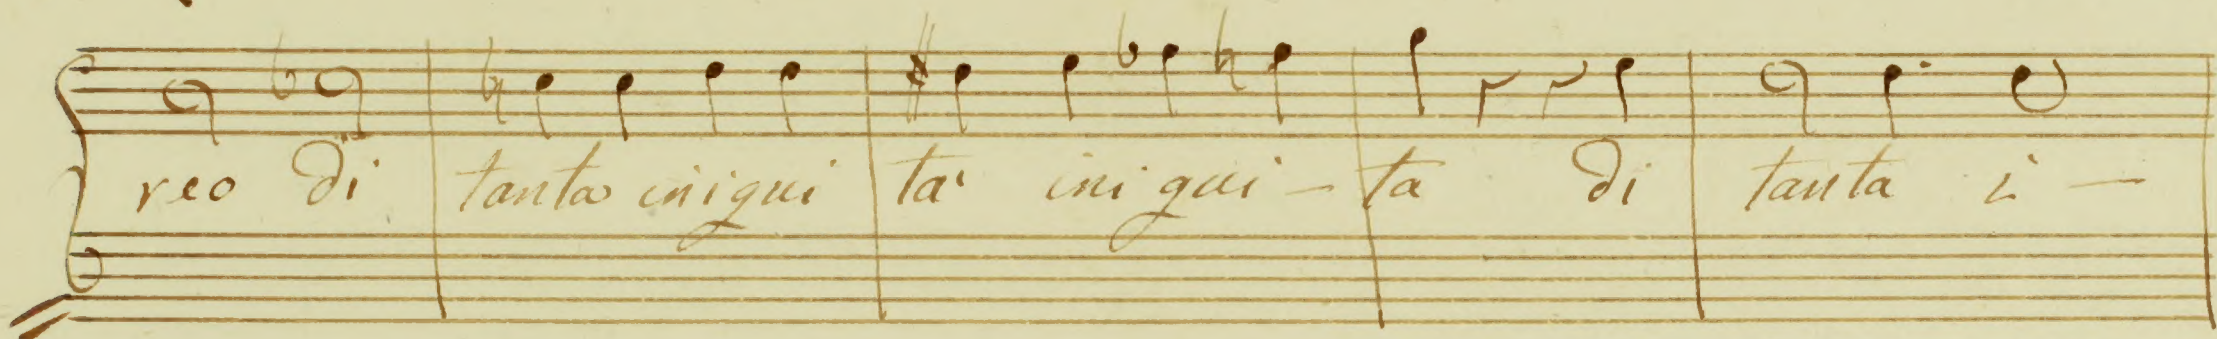 reo di tanta iniqui ta' ini qui - ta di tanta i -